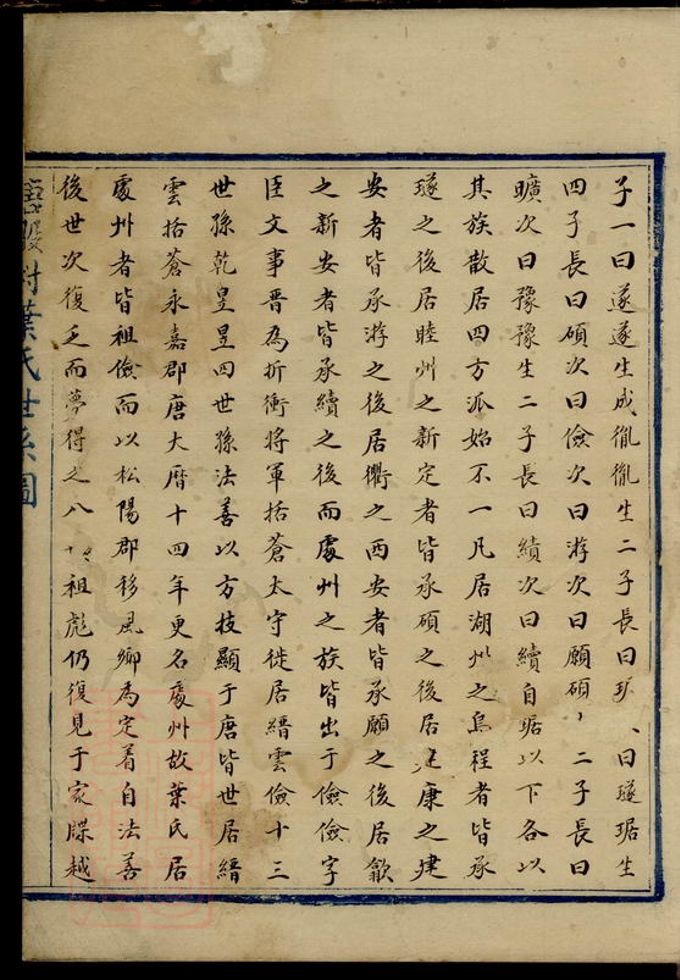 子一曰遂遂生成胤胤生二子長曰曰璲琚生
四子長曰碩次曰儉次曰游次曰願碩二子長曰
曠次曰豫豫生二子長曰績次曰續自琚以下各以
其族散居四方派始不一凡居湖州之烏程者皆承
璲之後居睦州之新定者皆承碩之後居建康之建
安者皆承游之後居衢之西安者皆承願之後居歙
之新安者皆承續之後而處州之族皆出于儉儉字
臣文事晋為折衝將軍括蒼太守徙居縉雲儉十三
世孫乾昱昱四世孫法善以方技顯于唐皆世居縉
雲括蒼永嘉郡唐大曆十四年更名處州故葉氏居
處州者皆祖儉而以松陽郡移風鄉為定着自法善
後世次復乏而夢得之八祖彪仍復見于家牒越
葉氏世系圖